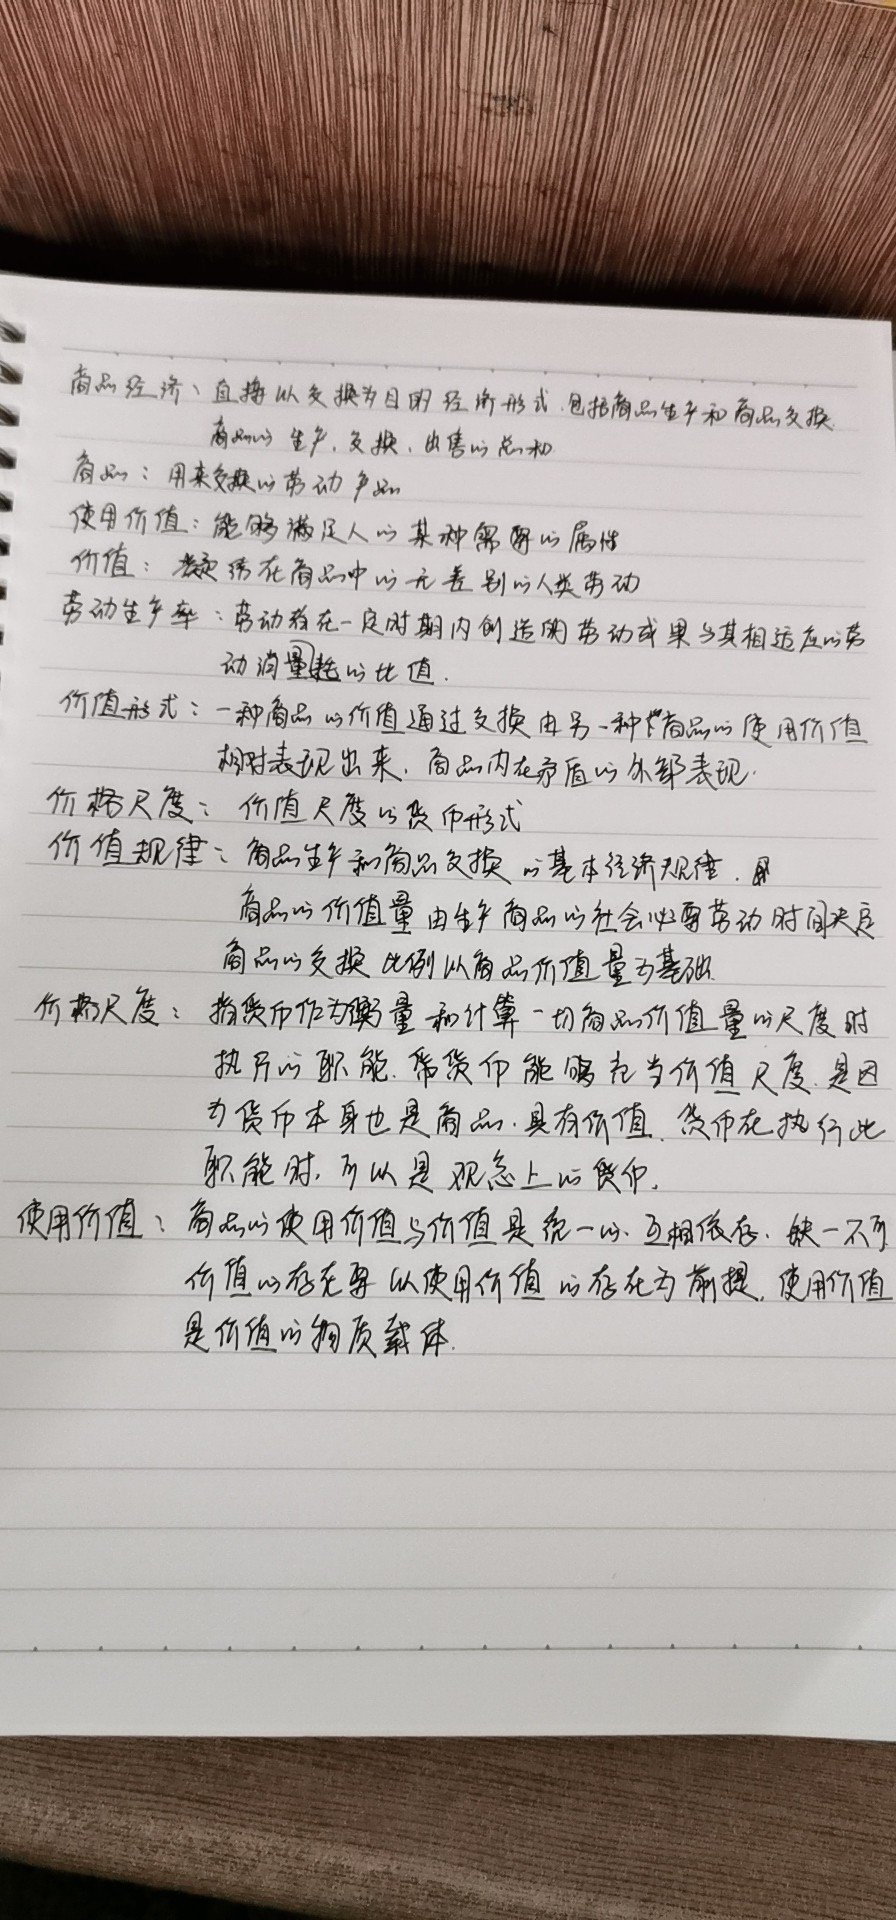 商品经济、直接以交换为目的经济形式.包括商品生产和商品交换.
商品的生产,交换,出售的总和
商品:用来交换的劳动产品
使用价值:能够满足人的某种需要的属性
价值:凝结在商品中的无差别的人类劳动
劳动生产率:劳动者在一定时期内创造的劳动成果与其相适应的劳
动消量耗的比值.
价值形式:一种商品的价值通过交换由另一种商品的使用价值
相对表现出来,商品内在矛盾的外部表现.
价格尺度:价值尺度的货币形式
价值规律:商品生产和商品交换的基本经济规律.
商品的价值量由生产商品的社会必要劳动时间决定
商品的交换比例以商品价值量为基础.
价格尺度:指货币作为衡量和计算一切商品价值量的尺度时
执行的职能.货币能够充当价值尺度.是因
为货币本身也是商品.具有价值.货币在执行此
职能时,可以是观念上的货币.
使用价值:商品的使用价值与价值是统一的.互相依存.缺一不可
价值的存在要以使用价值的存在为前提.使用价值
是价值的物质载体.